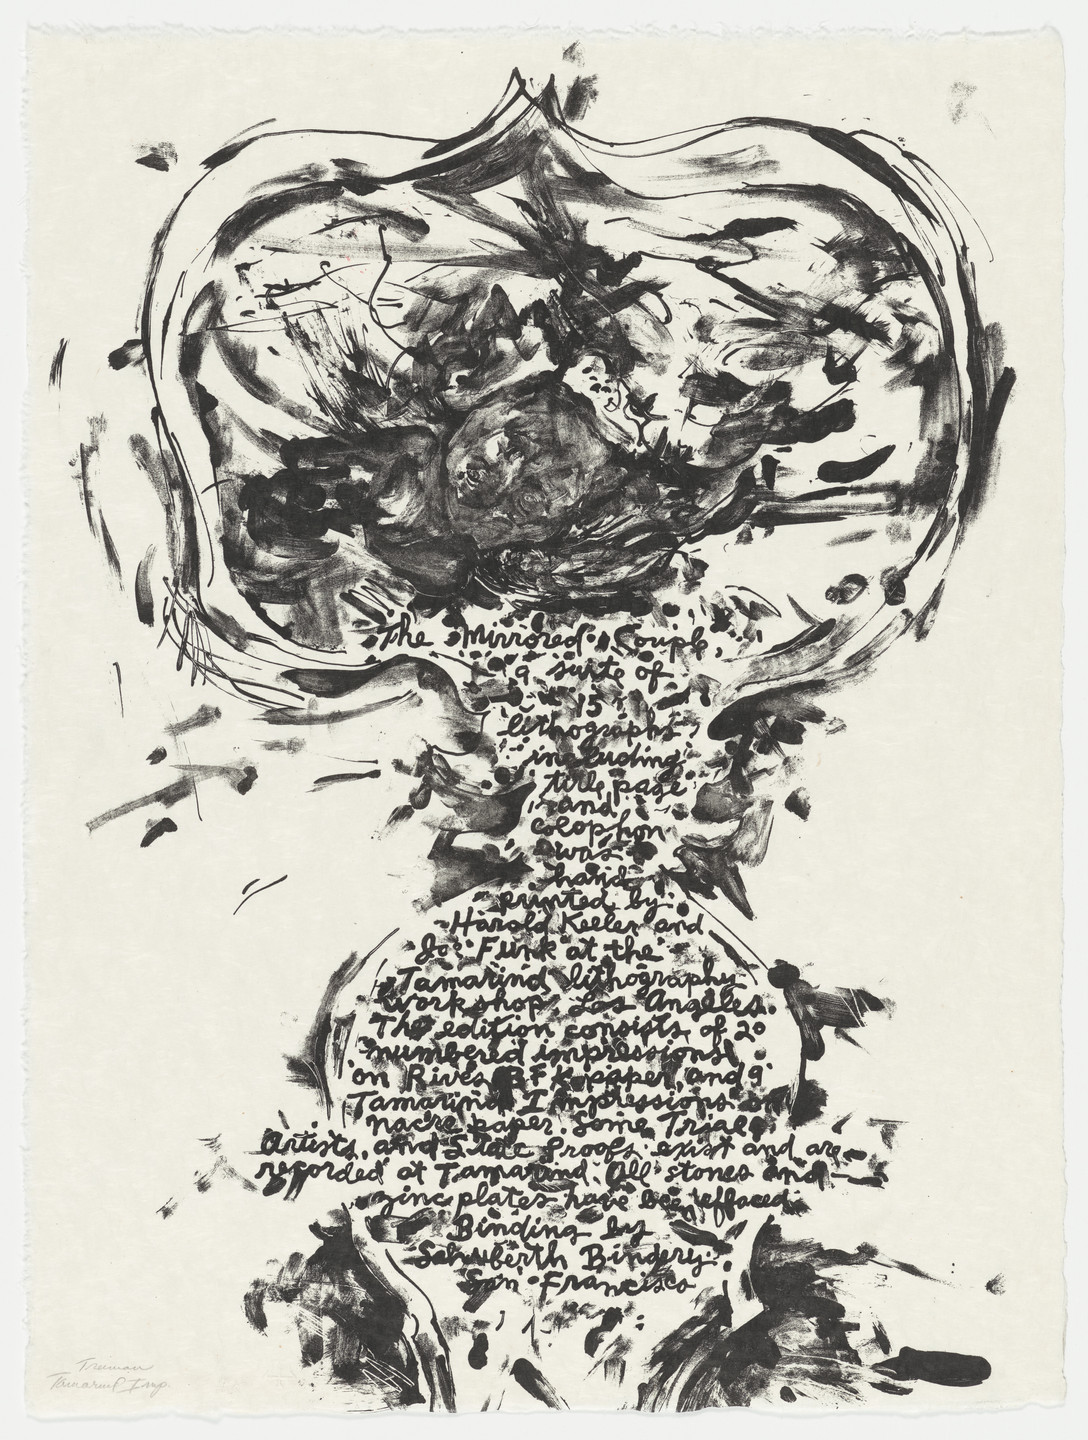 The Mirrored Couple,
a suite of
15
lithographs
including
title page
and
colophon
was
hand
printed by
Harold Keeler and
Jo Funk at the
Tamarind lithography
workshop, Los Angeles.
The edition consists of 20
numbered impressions
on Rives BFK paper, and 9
Tamarind Impressions on
nacre paper. Some Trial,
Artists, and State Proofs exist and are
recorded at Tamarind. All stones and
zinc plates have been effaced.
Binding by
Schuberth Bindery.
San Francisco
Tamarind Imp.